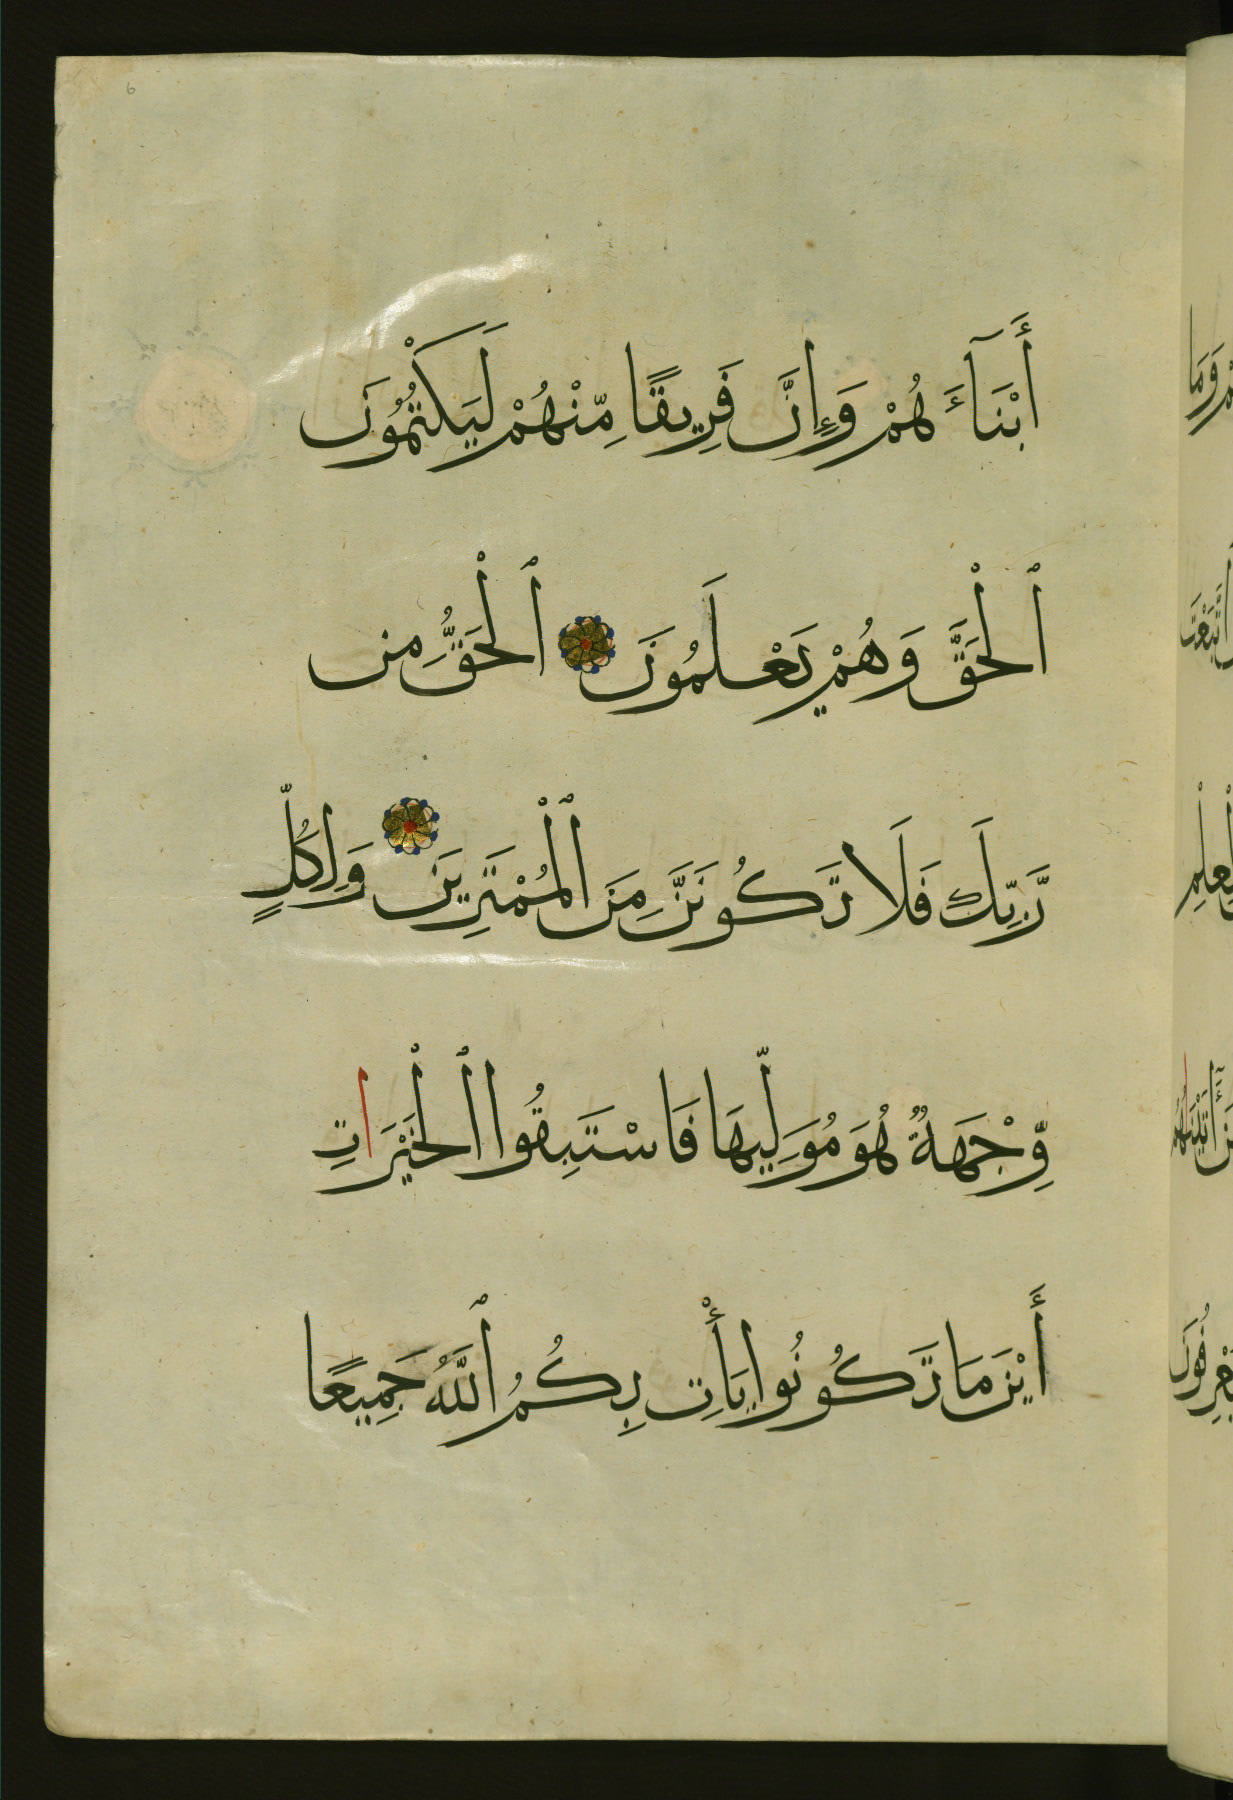 أَبْنَآءَهُمْ وَإِنَّ فَرِيقًا مِّنْهُمْ لَيَكْتُمُونَ
ٱلْحَقَّ وَهُمْ يَعْلَمُونَ ٱلْحَقُّ مِن
رَّبِّكَ فَلَا تَكُونَنَّ مِنَ ٱلْمُمْتَرِينَ وَلِكُلٍّ
وِّجْهَةٌ هُوَ مُوَلِّيهَا فَاسْتَبِقُوا ٱلْخَيْرَاتِ
أَيْنَ مَا تَكُونُوا يَأْتِ بِكُمُ ٱللَّهُ جَمِيعًا
6